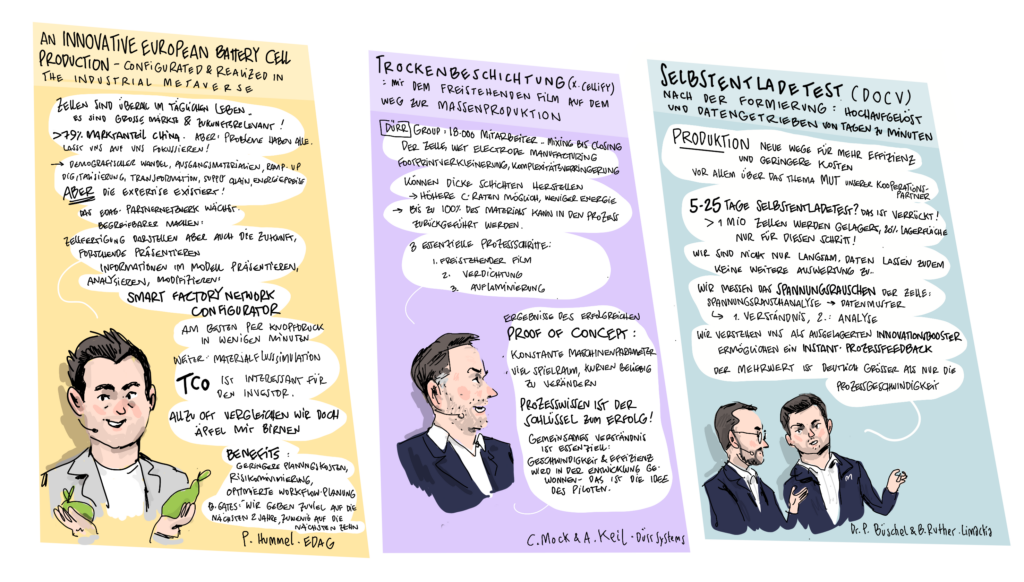 AN INNOVATIVE EUROPEAN BATTERY CELL
PRODUCTION – CONFIGURATED & REALIZED IN
THE INDUSTRIAL METAVERSE
ZELLEN SIND ÜBERALL IM TÄGLICHEN LEBEN.
ES SIND GROSSE MÄRKTE & ZUKUNFTSRELEVANT!
>79% MARKTANTEIL CHINA. ABER: PROBLEME HABEN ALLE.
LASST UNS AUF UNS FOKUSSIEREN!
→ DEMOGRAFISCHER WANDEL, AUSGANGSMATERIALIEN, RAMP-UP
DIGITALISIERUNG, TRANSFORMATION, SUPPLY CHAIN, ENERGIEPREISE
ABER DIE EXPERTISE EXISTIERT!
DAS EDAG-PARTNERNETZWERK WÄCHST.
BEGREIFBARER MACHEN:
ZELLFERTIGUNG DARSTELLEN ABER AUCH DIE ZUKUNFT,
FORSCHENDE PRÄSENTIEREN
INFORMATIONEN IM MODELL PRÄSENTIEREN,
ANALYSIEREN, MODIFIZIEREN:
SMART FACTORY NETWORK
CONFIGURATOR
AM BESTEN PER KNOPFDRUCK
IN WENIGEN MINUTEN
WEITER: MATERIALFLUSSSIMULATION
TCO IST INTERESSANT FÜR
DEN INVESTOR.
ALLZU OFT VERGLEICHEN WIR DOCH
ÄPFEL MIT BIRNEN
BENEFITS:
GERINGERE PLANUNGSKOSTEN,
RISIKOMINIMIERUNG,
OPTIMIERTE WORKFLOW-PLANUNG
B. GATES: "WIR GEBEN ZUVIEL AUF DIE
NÄCHSTEN 2 JAHRE, ZUWENIG AUF DIE
NÄCHSTEN ZEHN
P. HUMMEL · EDAG
TROCKENBESCHICHTUNG (X.CELLIFY)
: MIT DEM FREISTEHENDEN FILM AUF DEM
WEG ZUR MASSENPRODUKTION
DÜRR GROUP: 18.000 MITARBEITER – MIXING BIS CLOSING
DER ZELLE, WET ELECTRODE MANUFACTURING
FOOTPRINTVERKLEINERUNG, KOMPLEXITÄTSVERRINGERUNG
KÖNNEN DICKE SCHICHTEN HERSTELLEN
→ HÖHERE C-RATEN MÖGLICH, WENIGER ENERGIE
→ BIS ZU 100% DES MATERIALS KANN IN DEN PROZESS
ZURÜCKGEFÜHRT WERDEN.
3 ESSENZIELLE PROZESSCHRITTE:
1. FREISTEHENDER FILM
2. VERDICHTUNG
3. AUFLAMINIERUNG
ERGEBNISSE DES ERFOLGREICHEN
PROOF OF CONCEPT:
· KONSTANTE MASCHINENPARAMETER
· VIEL SPIELRAUM, KURVEN BELIEBIG
ZU VERÄNDERN
PROZESSWISSEN IST DER
SCHLÜSSEL ZUM ERFOLG!
GEMEINSAMES VERSTÄNDNIS
IST ESSENZIELL:
GESCHWINDIGKEIT & EFFIZIENZ
WIRD IN DER ENTWICKLUNG GE-
WONNEN – DAS IST DIE IDEE
DES PILOTEN.
C. MOCK & A. KEIL · Dürr Systems
SELBSTENTLADETEST (DOCV)
NACH DER FORMIERUNG: HOCHAUFGELÖST
UND DATENGETRIEBEN VON TAGEN ZU MINUTEN
PRODUKTION NEUE WEGE FÜR MEHR EFFIZIENZ
UND GERINGERE KOSTEN
VOR ALLEM ÜBER DAS THEMA MUT UNSERER KOOPERATIONS-
PARTNER
5-25 TAGE SELBSTENTLADETEST? DAS IST VERRÜCKT!
> 1 MIO ZELLEN WERDEN GELAGERT, LAGERFLÄCHE
NUR FÜR DIESEN SCHRITT!
WIR SIND NICHT NUR LANGSAM, DATEN LASSEN ZUDEM
KEINE WEITERE AUSWERTUNG ZU.
WIR MESSEN DAS SPANNUNGSRAUSCHEN DER ZELLE:
SPANNUNGSRAUSCHANALYSE → DATENMUSTER
↳ 1. VERSTÄNDNIS, 2.: ANALYSE
WIR VERSTEHEN UNS ALS AUSGELAGERTEN INNOVATIONSBOOSTER
ERMÖGLICHEN EIN INSTANT-PROZESSFEEDBACK
DER MEHRWERT IST DEUTLICH GRÖSSER ALS NUR DIE
PROZESSGESCHWINDIGKEIT
Dr. P. Büschel & B. Ruther · Limatica